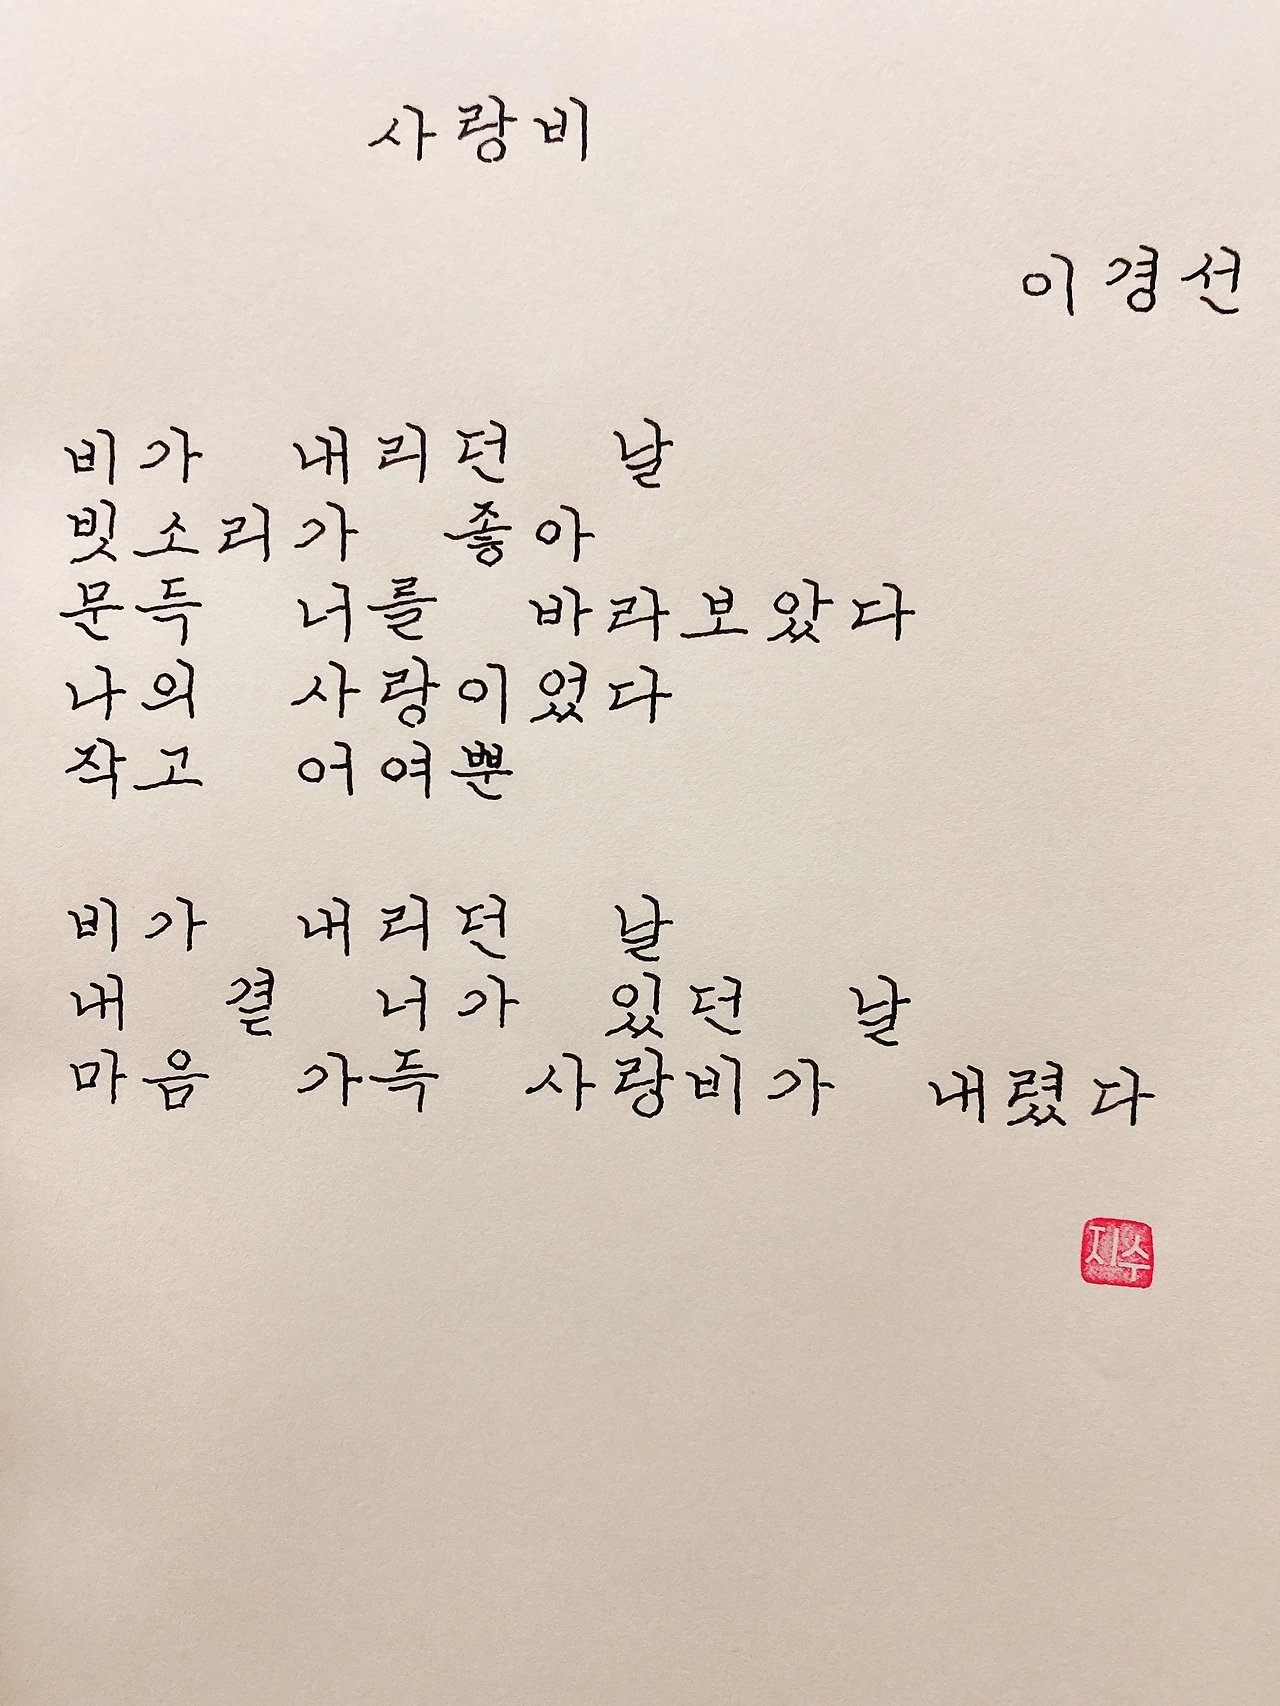 사랑비
이경선
비가 내리던 날
빗소리가 좋아
문득 너를 바라보았다
나의 사랑이었다
작고 어여뿐
비가 내리던 날
내 곁 너가 있던 날
마음 가득 사랑비가 내렸다
지수